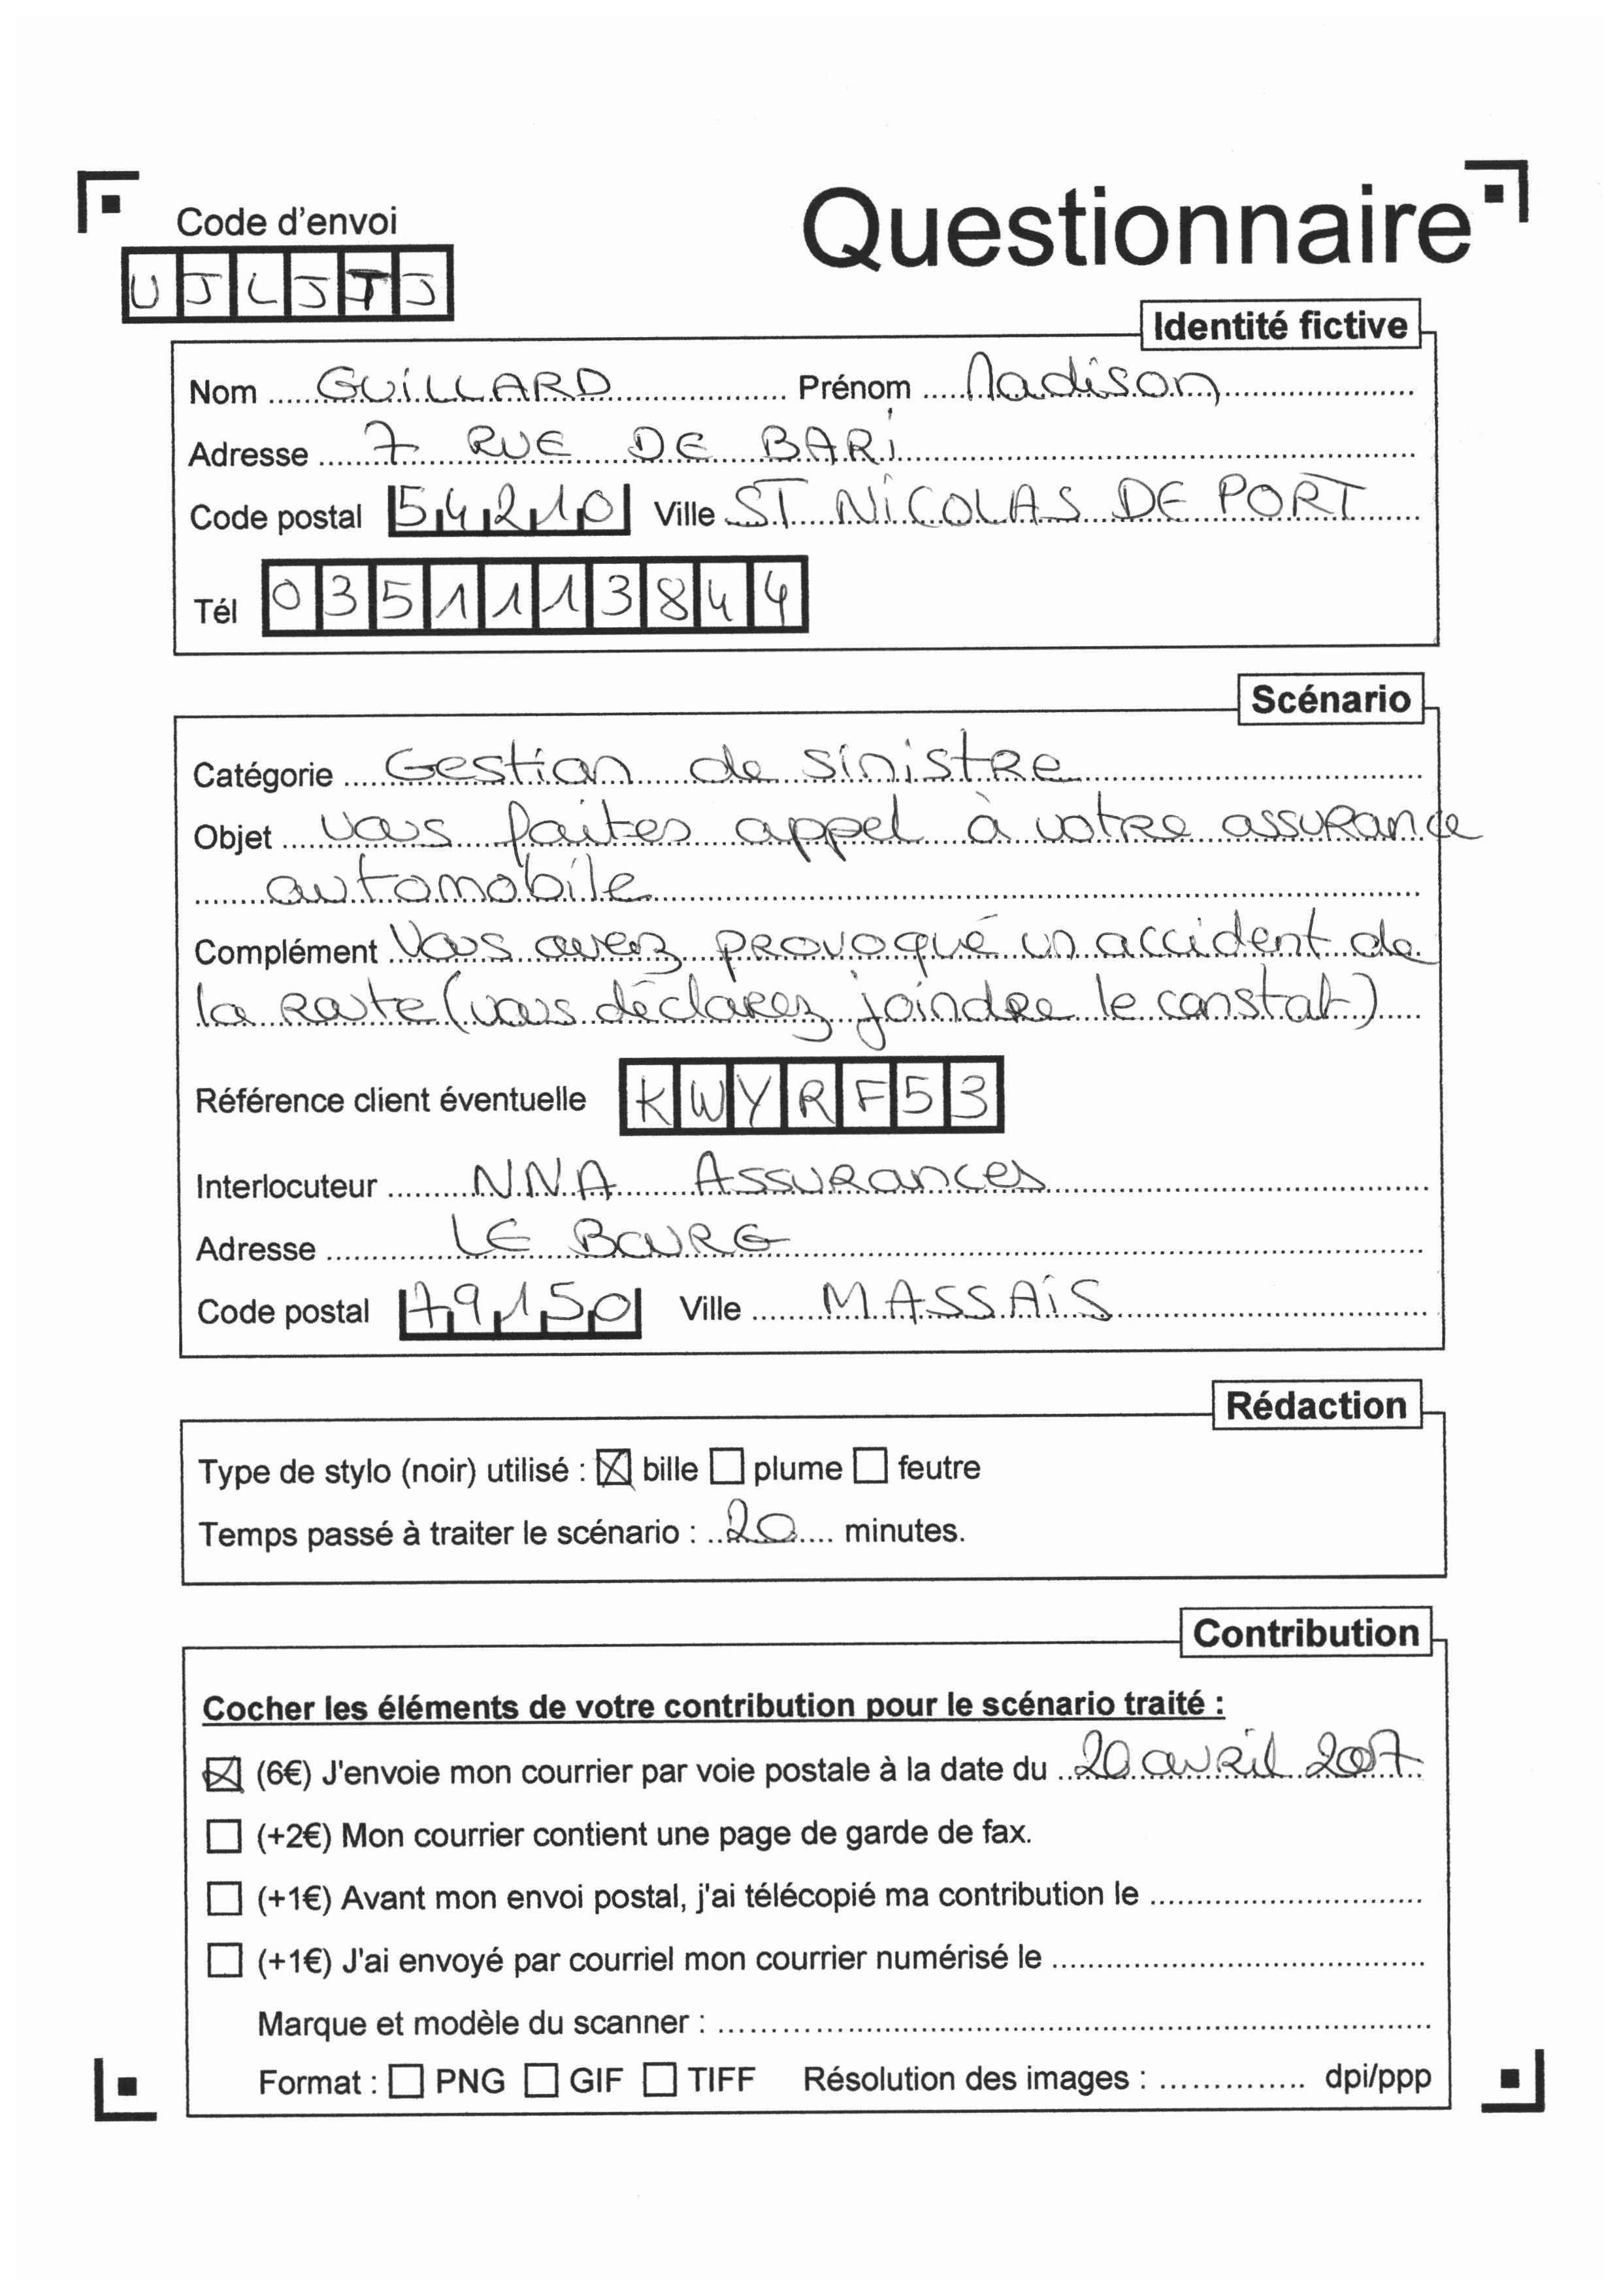 Questionnaire
Code d'envoi
UJLJTJ
Identité fictive
Nom GUILLARD Prénom Madison
Adresse 7 RUE DE BARI
Code postal 54210 Ville ST NICOLAS DE PORT
Tél 0351113844
Scénario
Catégorie Gestion de sinistre
Objet Vous faites appel à votre assurance
automobile
Complément Vous avez provoqué un accident de
la route (vous déclarez joindre le constat)
Référence client éventuelle KWYRF53
Interlocuteur NNA Assurances
Adresse LE BOURG
Code postal 79150 Ville MASSAIS
Rédaction
Type de stylo (noir) utilisé : ☒ bille ☐ plume ☐ feutre
Temps passé à traiter le scénario : 20 minutes.
Contribution
Cocher les éléments de votre contribution pour le scénario traité :
☒ (6€) J'envoie mon courrier par voie postale à la date du 20 avril 2007
☐ (+2€) Mon courrier contient une page de garde de fax.
☐ (+1€) Avant mon envoi postal, j'ai télécopié ma contribution le
☐ (+1€) J'ai envoyé par courriel mon courrier numérisé le
Marque et modèle du scanner :
Format : ☐ PNG ☐ GIF ☐ TIFF Résolution des images : dpi/ppp